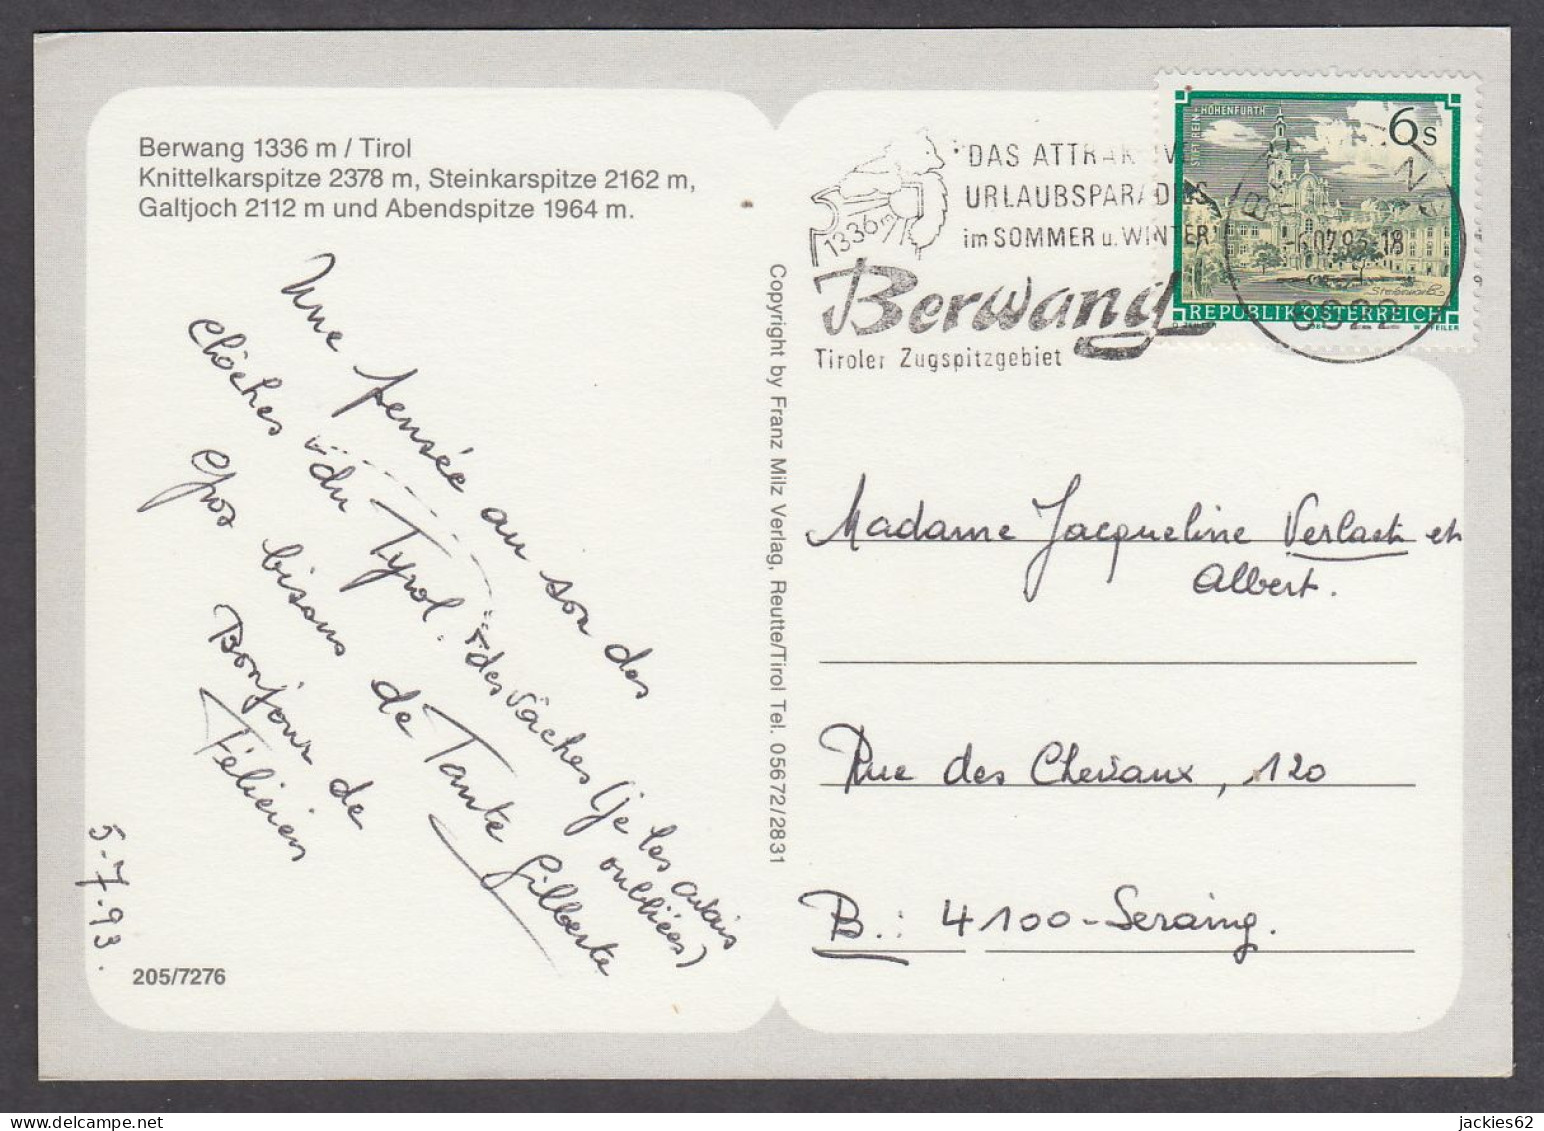 Berwang 1336 m / Tirol
Knittelkarspitze 2378 m, Steinkarspitze 2162 m,
Galtjoch 2112 m und Abendspitze 1964 m.
Une pensée au son des
clôches du Tyrol.
des vâches (je les avais
oubliées)
Gros bisous de Tante Gilberte
Bonjour de
Félicien
5-7-93.
205/7276
Copyright by Franz Milz Verlag, Reutte/Tirol Tel. 05672/2831
1336m
DAS
URLAUBSPARADIES
im SOMMER u. WINTER
Berwang
Tiroler Zugspitzgebiet
STIFT REIN-HOHENFURTH
6 S
REPUBLIK ÖSTERREICH
Madame Jacqueline Verlaet et
Albert.
Rue des Chevaux, 120
B.: 4100-Seraing.
jackies62